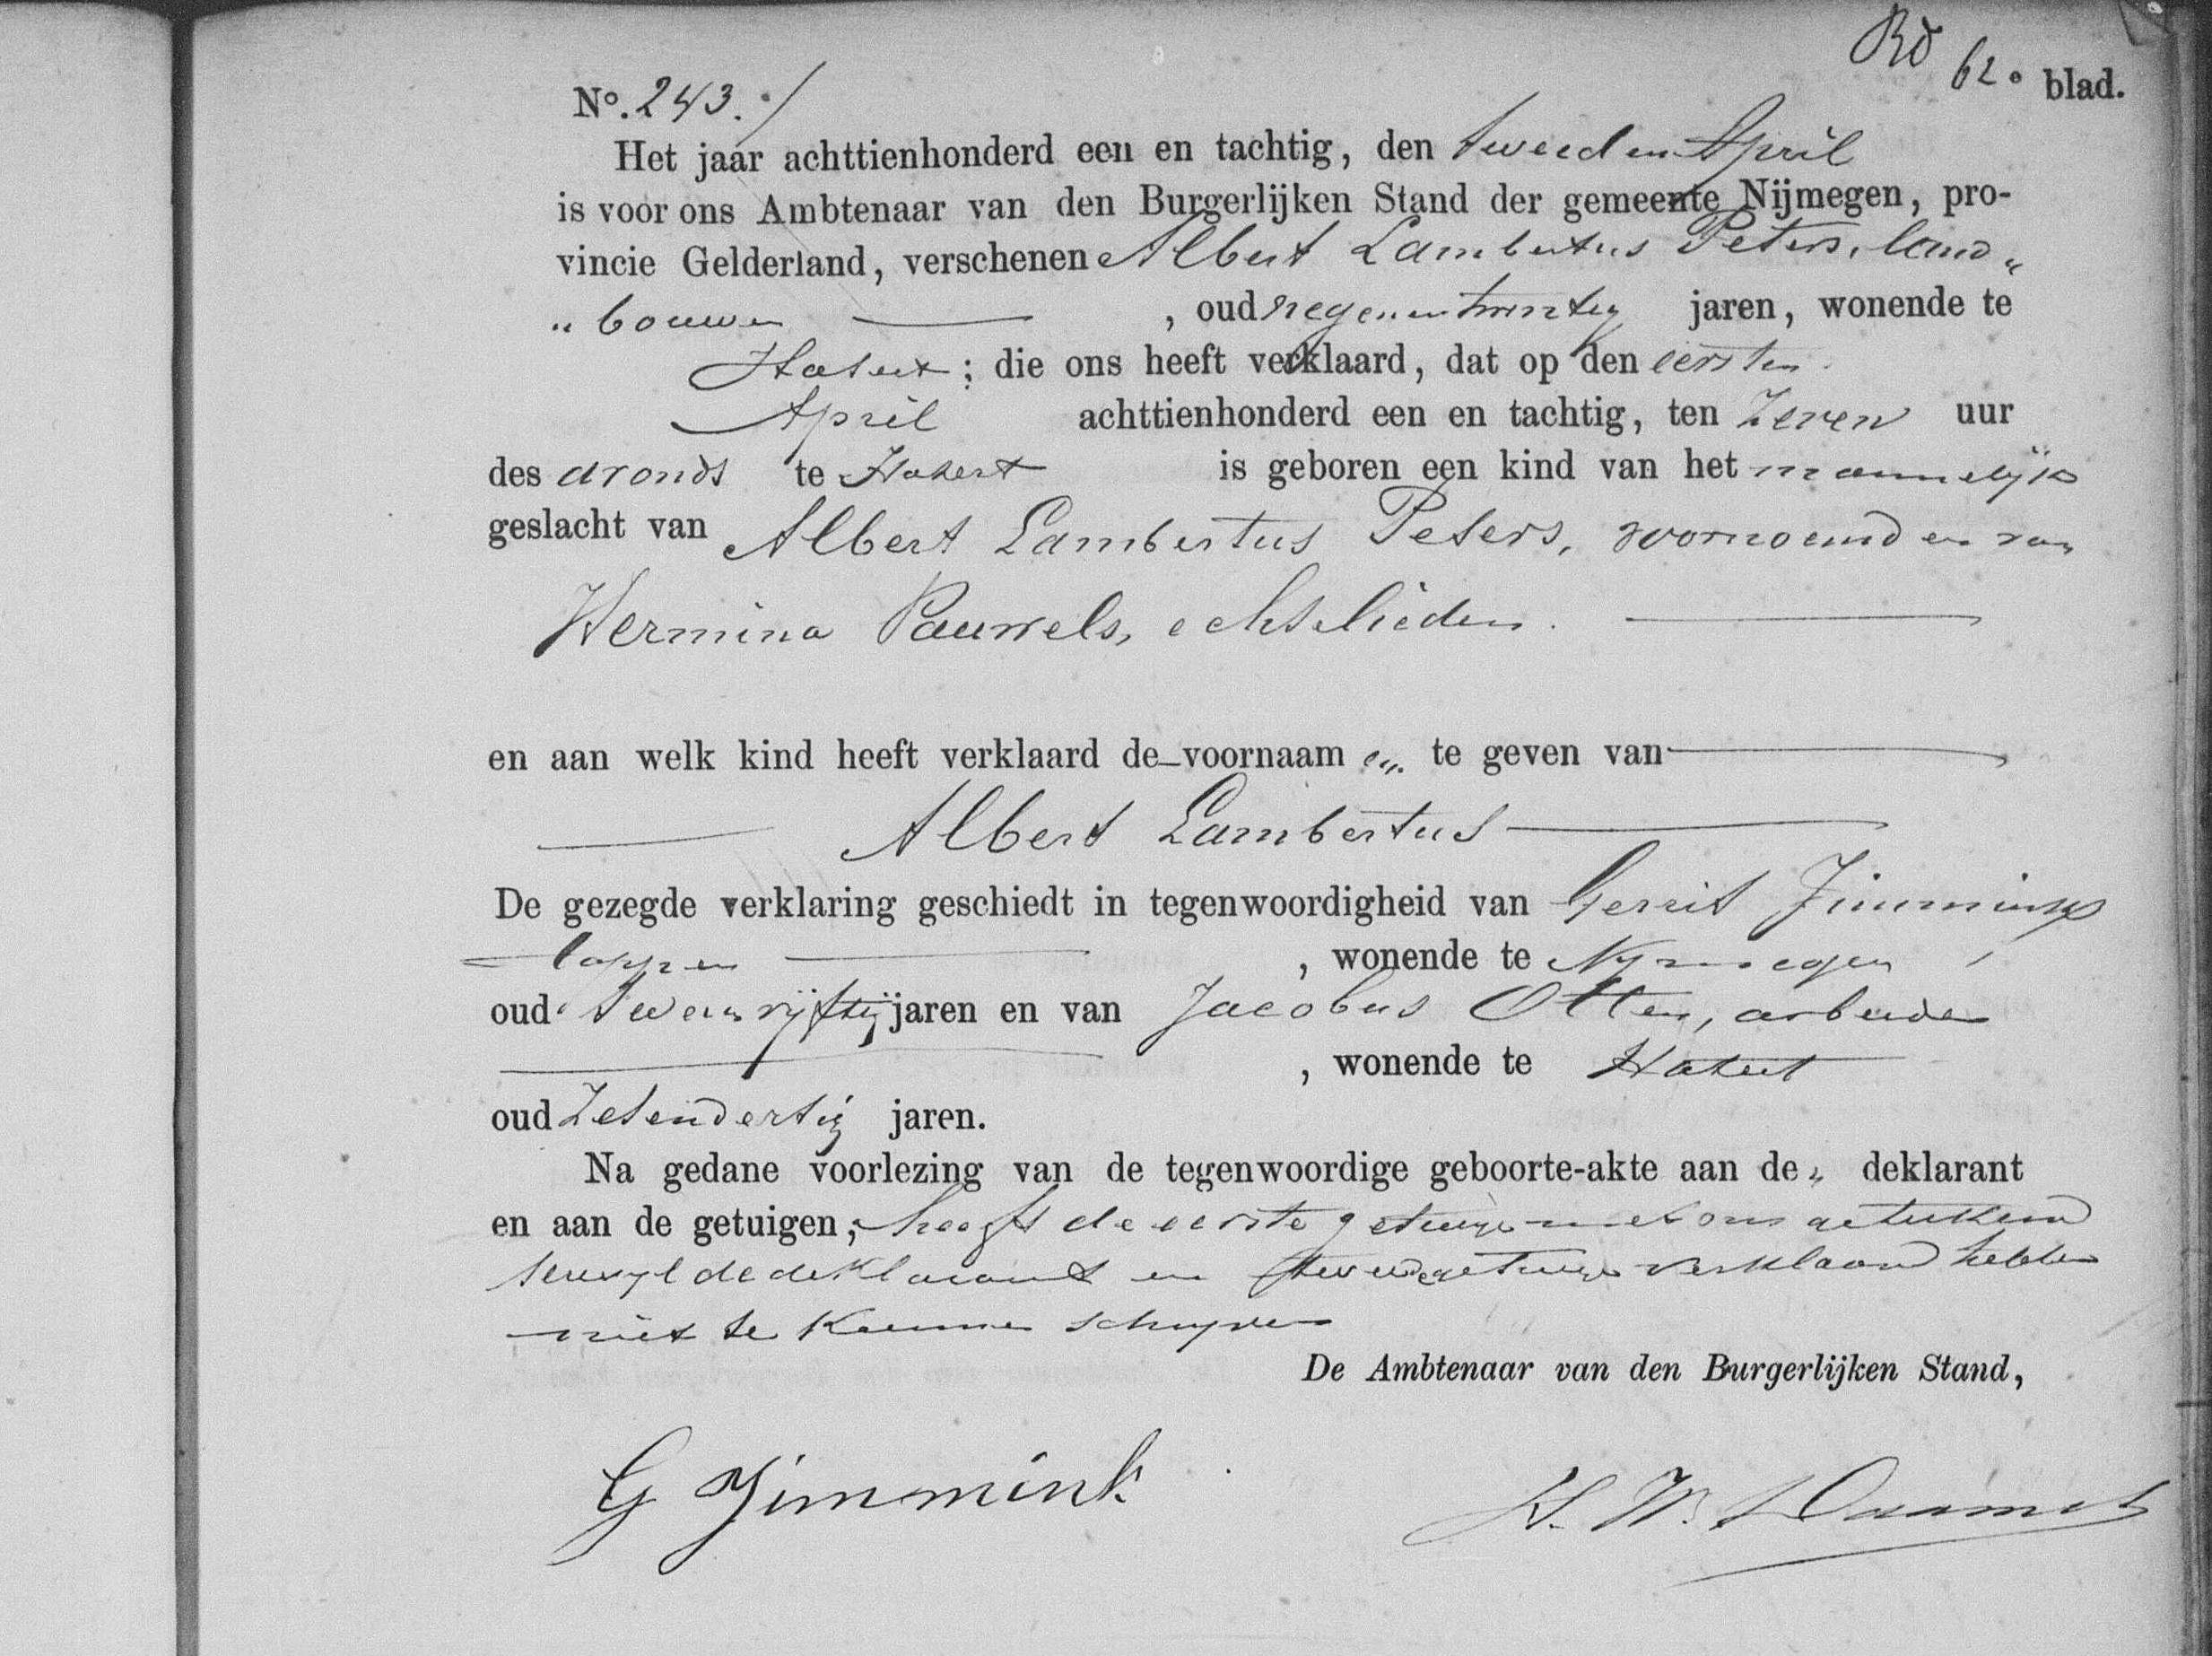 62e blad.
No. 243.
Het jaar achttienhonderd een en tachtig, den tweeden April
is voor ons Ambtenaar van den Burgerlijken Stand der gemeente Nijmegen, pro-
vincie Gelderland, verschenen Albert Lambertus Peters, land„
„bouwer , oud negenentwintig jaren, wonende te
Hatert ; die ons heeft verklaard, dat op den eersten
April achttienhonderd een en tachtig, ten zeven uur
des avonds te Hatert is geboren een kind van het mannelijk
geslacht van Albert Lambertus Peters, voornoemd en van
Hermina Pauwels, echtelieden.
en aan welk kind heeft verklaard de voornaam en te geven van
Albert Lambertus
De gezegde verklaring geschiedt in tegenwoordigheid van Gerrit Jimmink
, wonende te Nijmegen
oud tweenvijftig jaren en van Jacobus Otten, arbeider
, wonende te Hatert
oud zesendertig jaren.
Na gedane voorlezing van de tegenwoordige geboorte-akte aan de„ deklarant
en aan de getuigen, heeft de eerste getuige met ons geteekend
terwijl de deklarant en tweede getuige verklaard hebben
niet te kunnen schrijven
De Ambtenaar van den Burgerlijken Stand,
G Jimmink